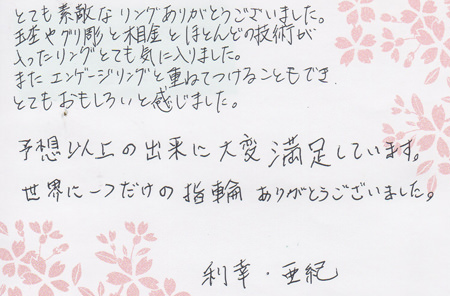 とても素敵なリングありがとうございました。
杢やグリ彫と相金とほとんどの技術が
入ったリングとても気に入りました。
またエンゲージリングと重ねてつけることもでき
とてもおもしろいと感じました。
予想以上の出来に大変満足しています。
世界に一つだけの指輪ありがとうございました。
利幸・亜紀